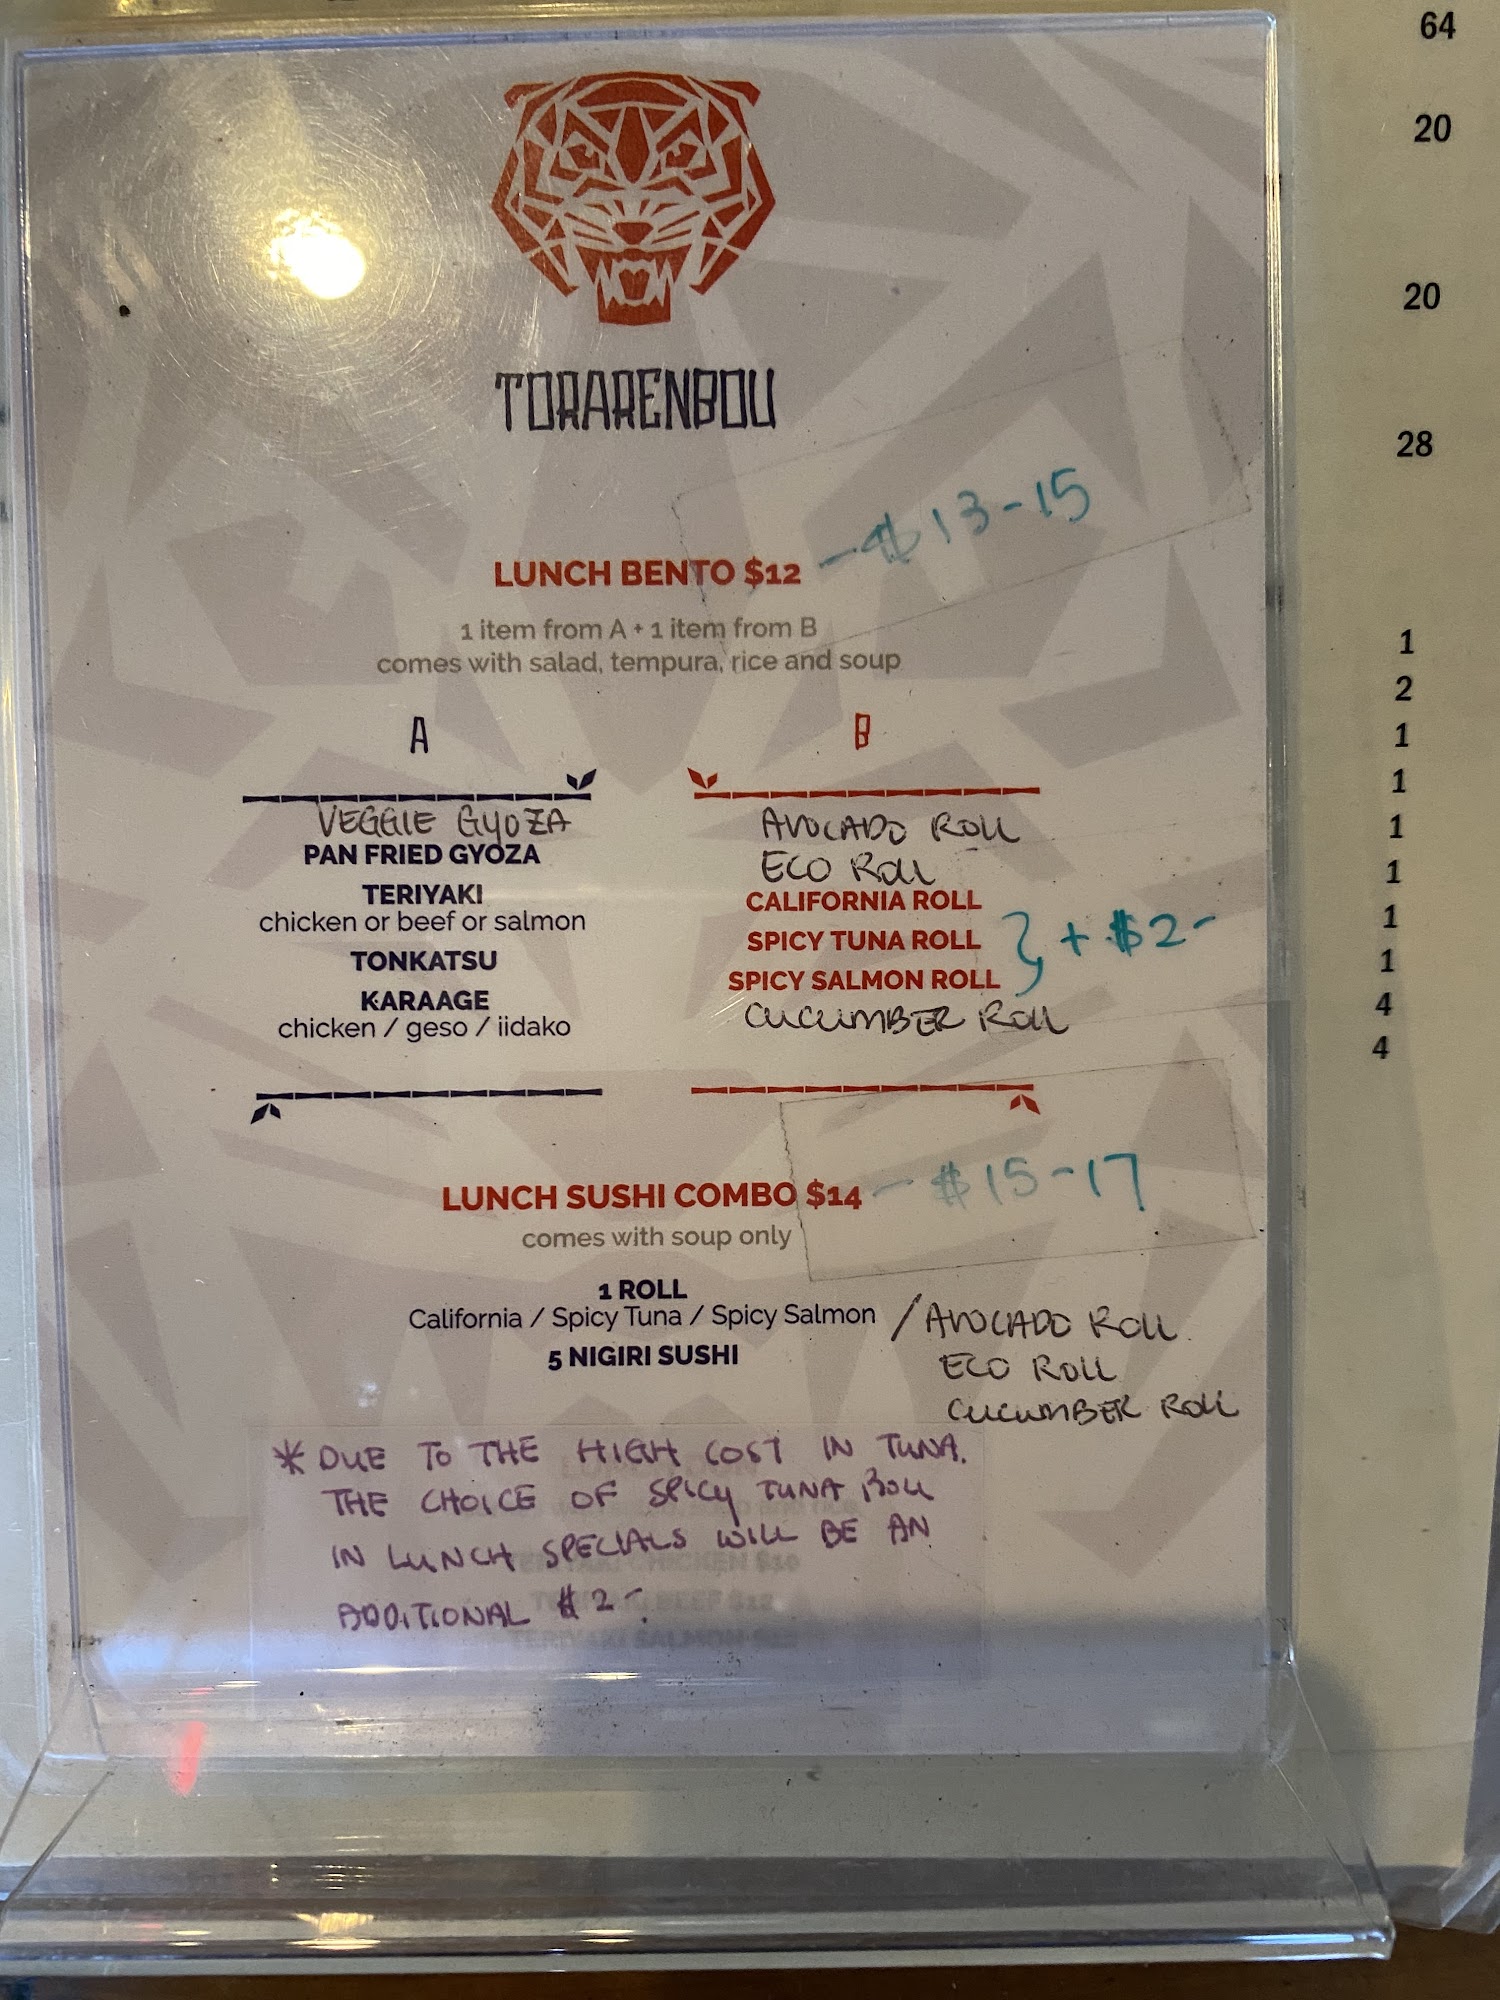 TORARENBOU
LUNCH BENTO $12 - $13-15
1 item from A + 1 item from B
comes with salad, tempura, rice and soup
A
VEGGIE GYOZA
PAN FRIED GYOZA
TERIYAKI
chicken or beef or salmon
TONKATSU
KARAAGE
chicken / geso / iidako
B
AVOCADO ROLL
ECO ROLL
CALIFORNIA ROLL
SPICY TUNA ROLL
SPICY SALMON ROLL
} + $2-
CUCUMBER ROLL
LUNCH SUSHI COMBO $14 - $15-17
comes with soup only
1 ROLL
California / Spicy Tuna / Spicy Salmon / AVOCADO ROLL
ECO ROLL
CUCUMBER ROLL
5 NIGIRI SUSHI
* DUE TO THE HIGH COST IN TUNA.
THE CHOICE OF SPICY TUNA ROLL
IN LUNCH SPECIALS WILL BE AN
ADDITIONAL $2-.
CHICKEN $10
BEEF $12
TERIYAKI SALMON
64
20
20
28
1
2
1
1
1
1
1
1
4
4